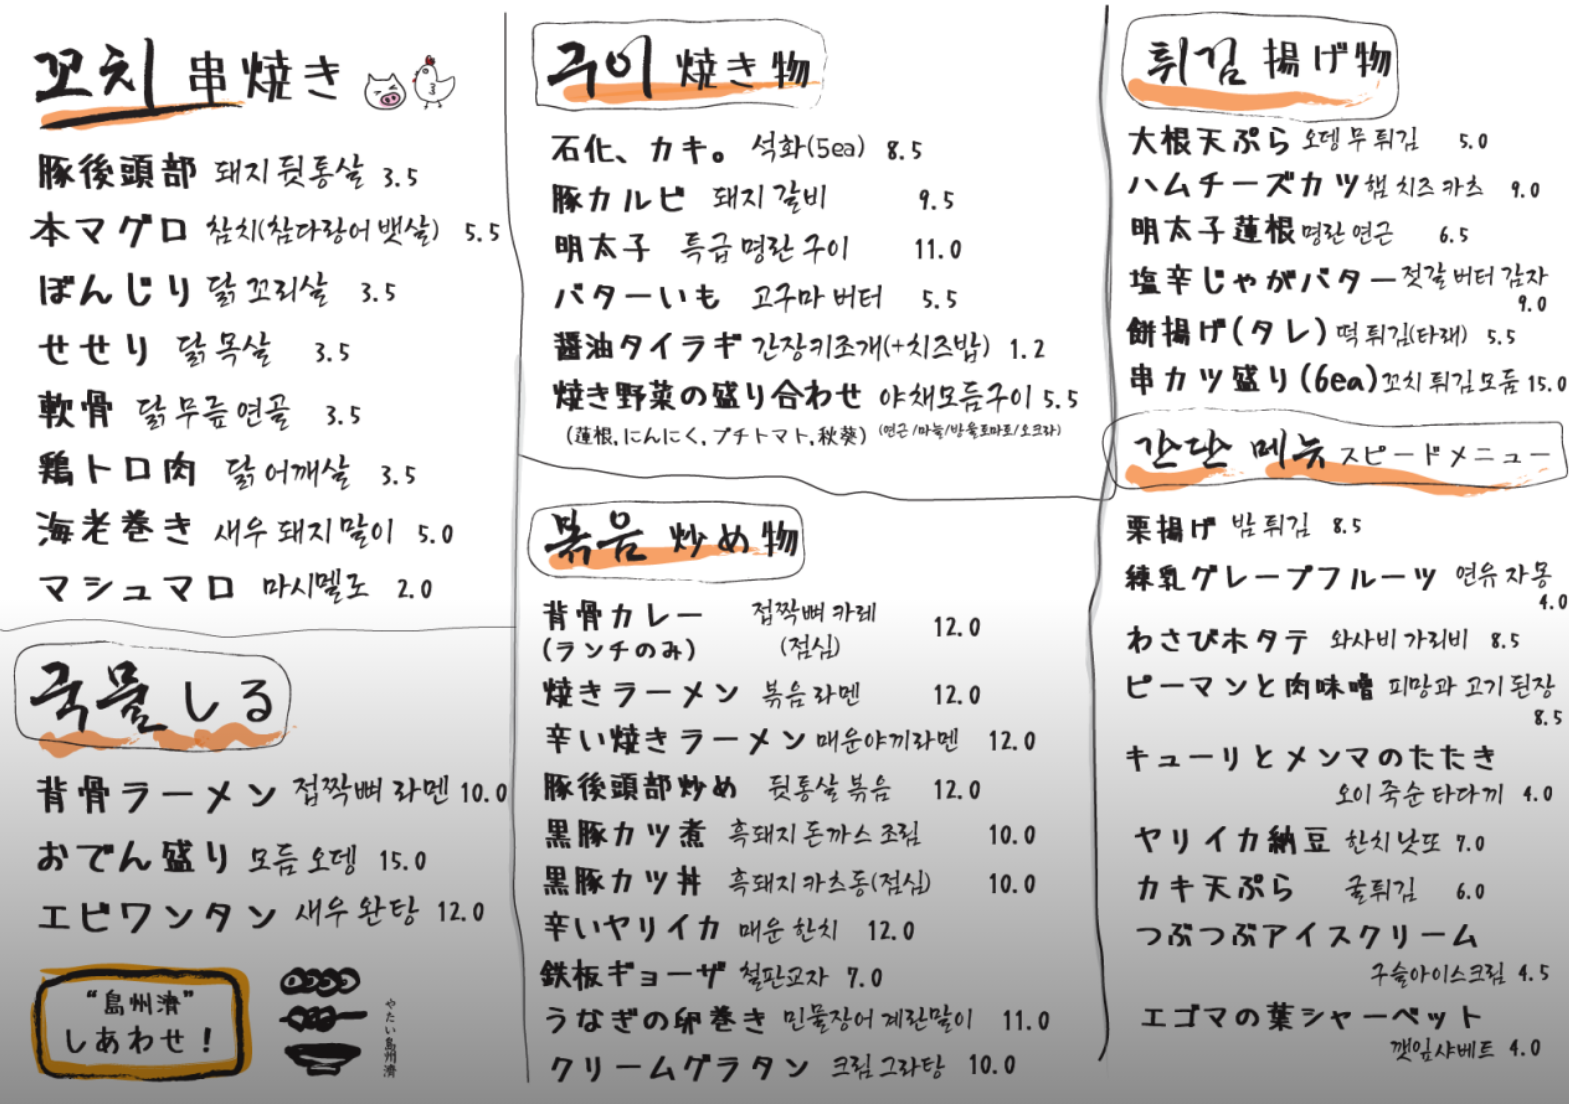 꼬치 串焼き
豚後頭部 돼지 뒷통살 3.5
本マグロ 참치(참다랑어 뱃살) 5.5
ぼんじり 닭 꼬리살 3.5
せせり 닭 목살 3.5
軟骨 닭 무릎 연골 3.5
鶏トロ肉 닭 어깨살 3.5
海老巻き 새우 돼지 말이 5.0
マシュマロ 마시멜로 2.0
국물 しる
背骨ラーメン 접짝뼈 라멘 10.0
おでん盛り 모듬 오뎅 15.0
エビワンタン 새우 완탕 12.0
“島州濟”
しあわせ!
やたい島州濟
구이 焼き物
石化、カキ。 석화(5ea) 8.5
豚カルビ 돼지 갈비 9.5
明太子 특급 명란 구이 11.0
バターいも 고구마 버터 5.5
醤油タイラギ 간장키조개(+치즈밥) 1.2
焼き野菜の盛り合わせ 야채모듬구이 5.5
(蓮根,にんにく,プチトマト,秋葵) (연근/마늘/방울토마토/오크라)
볶음 炒め物
背骨カレー 접짝뼈 카레 12.0
(ランチのみ) (점심)
焼きラーメン 볶음 라멘 12.0
辛い焼きラーメン 매운야끼라멘 12.0
豚後頭部炒め 뒷통살 볶음 12.0
黒豚カツ煮 흑돼지 돈까스 조림 10.0
黒豚カツ丼 흑돼지 카츠동(점심) 10.0
辛いヤリイカ 매운 한치 12.0
鉄板ギョーザ 철판교자 7.0
うなぎの卵巻き 민물장어 계란말이 11.0
クリームグラタン 크림 그라탕 10.0
튀김 揚げ物
大根天ぷら 오뎅 무 튀김 5.0
ハムチーズカツ 햄 치즈 카츠 9.0
明太子蓮根 명란 연근 6.5
塩辛じゃがバター 젓갈 버터 감자
9.0
餅揚げ(タレ) 떡 튀김(타래) 5.5
串カツ盛り(6ea) 꼬치 튀김 모듬 15.0
간단 메뉴 スピードメニュー
栗揚げ 밤 튀김 8.5
練乳グレープフルーツ 연유 자몽
4.0
わさびホタテ 와사비 가리비 8.5
ピーマンと肉味噌 피망과 고기 된장
8.5
キューリとメンマのたたき
오이 죽순 타다끼 4.0
ヤリイカ納豆 한치 낫또 7.0
カキ天ぷら 굴튀김 6.0
つぶつぶアイスクリーム
구슬아이스크림 4.5
エゴマの葉シャーベット
깻잎 샤베트 4.0